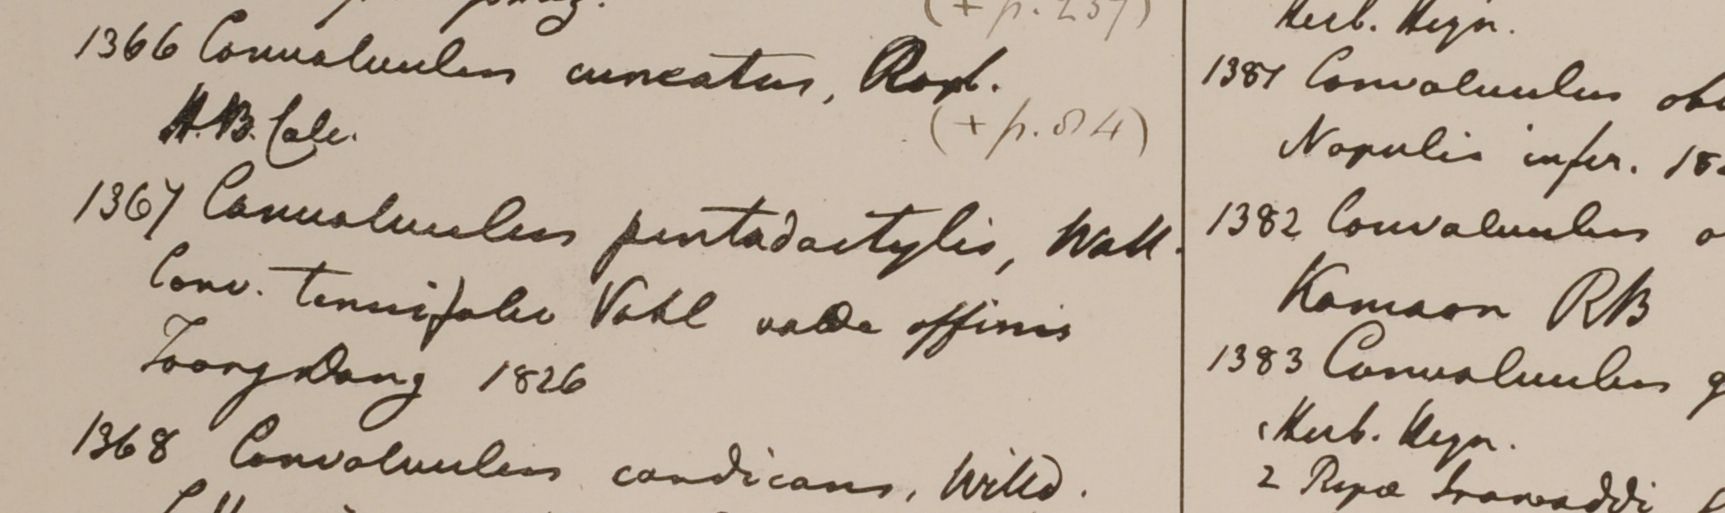 (+ p. 237)
1366 Convolvulus cuneatus, Roxb.
H.B. Calc.
(+ p. 84)
1367 Convolvulus pentadactylis, Wall.
Conv. tenuifolio Vahl valde affinis
Toong Dong 1826
1368 Convolvulus candicans, Willd.
Herb. Heyn.
1381 Convolvulus obl
Napulia infer. 182
1382 Convolvulus o
Kamaon RB
1383 Convolvulus g
Herb. Heyn.
2 Ripæ Irawaddi